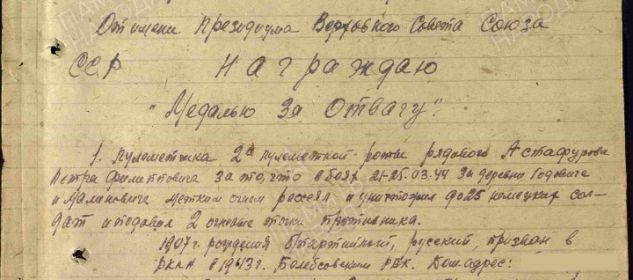 От имени Президиума Верховного Совета Союза
ССР Награждаю
"Медалью За Отвагу".
1. Пулеметчика 2й пулеметной роты рядового Астафурова
Петра Филипповича за то, что в боях 21-25.03.44 за деревни
и метким огнем рассеял и уничтожил до 25 немецких сол-
дат и подавил 2 огневые точки противника.
1907 г. рождения б/партийный, русский, призван в
РККА в 1943 г. РВК. Дом. адрес: